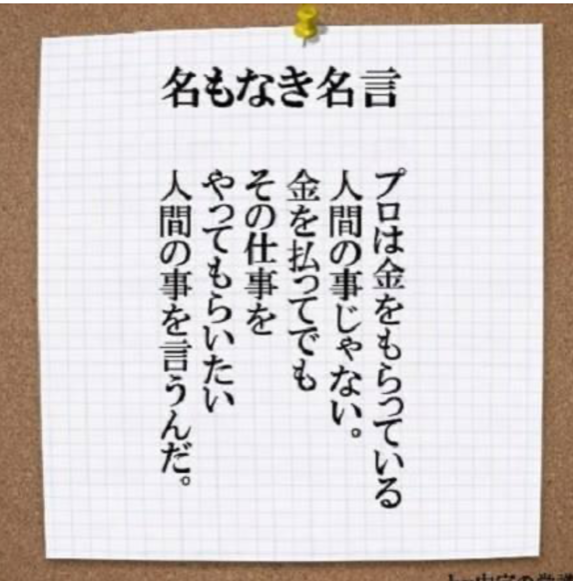 名もなき名言
プロは金をもらっている
人間の事じゃない。
金を払ってでも
その仕事を
やってもらいたい
人間の事を言うんだ。